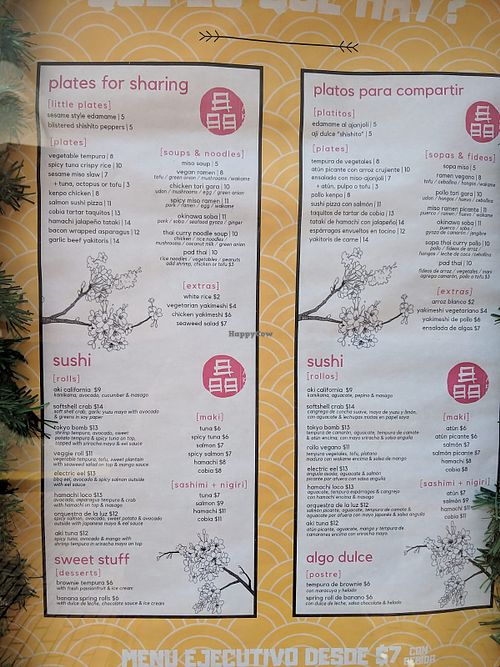 QUÉ ES QUE HAY?
plates for sharing
[little plates]
sesame style edamame | 5
blistered shishito peppers | 5
[plates]
vegetable tempura | 8
spicy tuna crispy rice | 10
sesame miso slaw | 7
+ tuna, octopus or tofu | 3
kenpo chicken | 8
salmon sushi pizza | 11
cobia tartar taquitos | 13
hamachi jalapeño tataki | 14
bacon wrapped asparagus | 12
garlic beef yakitoris | 14
[soups & noodles]
miso soup | 5
vegan ramen | 8
tofu / green onion / mushrooms / wakame
chicken tori gara | 10
udon / mushrooms / egg / green onion
spicy miso ramen | 11
pork / ramen / egg / wakame
okinawa soba | 11
pork / soba / seafood gyoza / ginger
thai curry noodle soup | 10
chicken / rice noodles /
mushrooms / coconut milk / green onion
pad thai | 10
rice noodles / vegetables / peanuts
add shrimp, chicken or tofu $3
[extras]
white rice $2
vegetarian yakimeshi $4
chicken yakimeshi $6
seaweed salad $7
sushi
[rolls]
aki california $9
kanikama, avocado, cucumber & masago
softshell crab $14
soft shell crab, garlic yuzu mayo with avocado
& greens in soy paper
tokyo bomb $13
shrimp tempura, avocado, sweet
potato tempura & spicy tuna on top,
topped with sriracha mayo & eel sauce
veggie roll $11
vegetable tempura, tofu, sweet plantain
with seaweed salad on top & mango sauce
electric eel $13
bbq eel, avocado & spicy salmon outside
with eel sauce
hamachi loco $13
avocado, asparagus tempura & crab
with hamachi on top & masago
orquestra de la luz $12
spicy salmon, avocado, sweet potato & avocado
outside with japanese mayo & eel sauce
aki tuna $12
spicy tuna, avocado & mango with
shrimp tempura in sriracha mayo on top
[maki]
tuna $6
spicy tuna $6
salmon $7
spicy salmon $7
hamachi $8
cobia $8
[sashimi + nigiri]
tuna $7
salmon $9
hamachi $11
cobia $11
sweet stuff
[desserts]
brownie tempura $6
with fresh passionfruit & ice cream
banana spring rolls $6
with dulce de leche, chocolate sauce & ice cream
platos para compartir
[platitos]
edamame al ajonjolí | 5
ají dulce "shishito" | 5
[plates]
tempura de vegetales | 8
atún picante con arroz crujiente | 10
ensalada con miso ajonjolí | 7
+ atún, pulpo o tofu | 3
pollo kenpo | 8
sushi pizza con salmón | 11
taquitos de tartar de cobia | 13
tataki de hamachi con jalapeño | 14
espárragos envueltos en tocino | 12
yakitoris de carne | 14
[sopas & fideos]
sopa miso | 5
ramen vegano | 8
tofu / cebollina / hongos / wakame
pollo tori gara | 10
udon / hongos / huevo / cebollina
miso ramen picante | 11
puerco / ramen / huevo / wakame
okinawa soba | 11
puerco / soba /
gyoza de camarón / jengibre
sopa thai curry pollo | 10
pollo / fideos de arroz /
hongos / leche de coco / cebollina
pad thai | 10
fideos de arroz / vegetales / maní
agrega camarón, pollo o tofu $3
[extras]
arroz blanco $2
yakimeshi vegetariano $4
yakimeshi de pollo $6
ensalada de algas $7
sushi
[rollos]
aki california $9
kanikama, aguacate, pepino & masago
softshell crab $14
cangrejo de concha suave, mayo de yuzu y limón,
con aguacate & lechugas mixtas en papel soya
tokyo bomb $13
tempura de camarón, aguacate, tempura de camote
& atún encima, con mayo sriracha & salsa anguila
rollo vegano $11
tempura vegetales, tofu, platano
maduro con wakame encima & salsa de mango
electric eel $13
anguila asada, aguacate & salmón
picante por afuera con salsa anguila
hamachi loco $13
aguacate, tempura espárragos & cangrejo
con hamachi encima & masago
orquestra de la luz $12
salmón picante, aguacate, tempura de camote &
aguacate por afuera con mayo japonés & salsa anguila
aki tuna $12
atún picante, aguacate, mango y tempura de
camarones encima con sriracha mayo.
[maki]
atún $6
atún picante $6
salmón $7
salmón picante $7
hamachi $8
cobia $8
[sashimi + nigiri]
atún $7
salmón $9
hamachi $11
cobia $11
algo dulce
[postre]
tempura de brownie $6
con maracuya y helado
spring roll de banano $6
con dulce de leche, salsa chocolate & helado
MENÚ EJECUTIVO DESDE $7 CON
BEBIDA
HappyCow